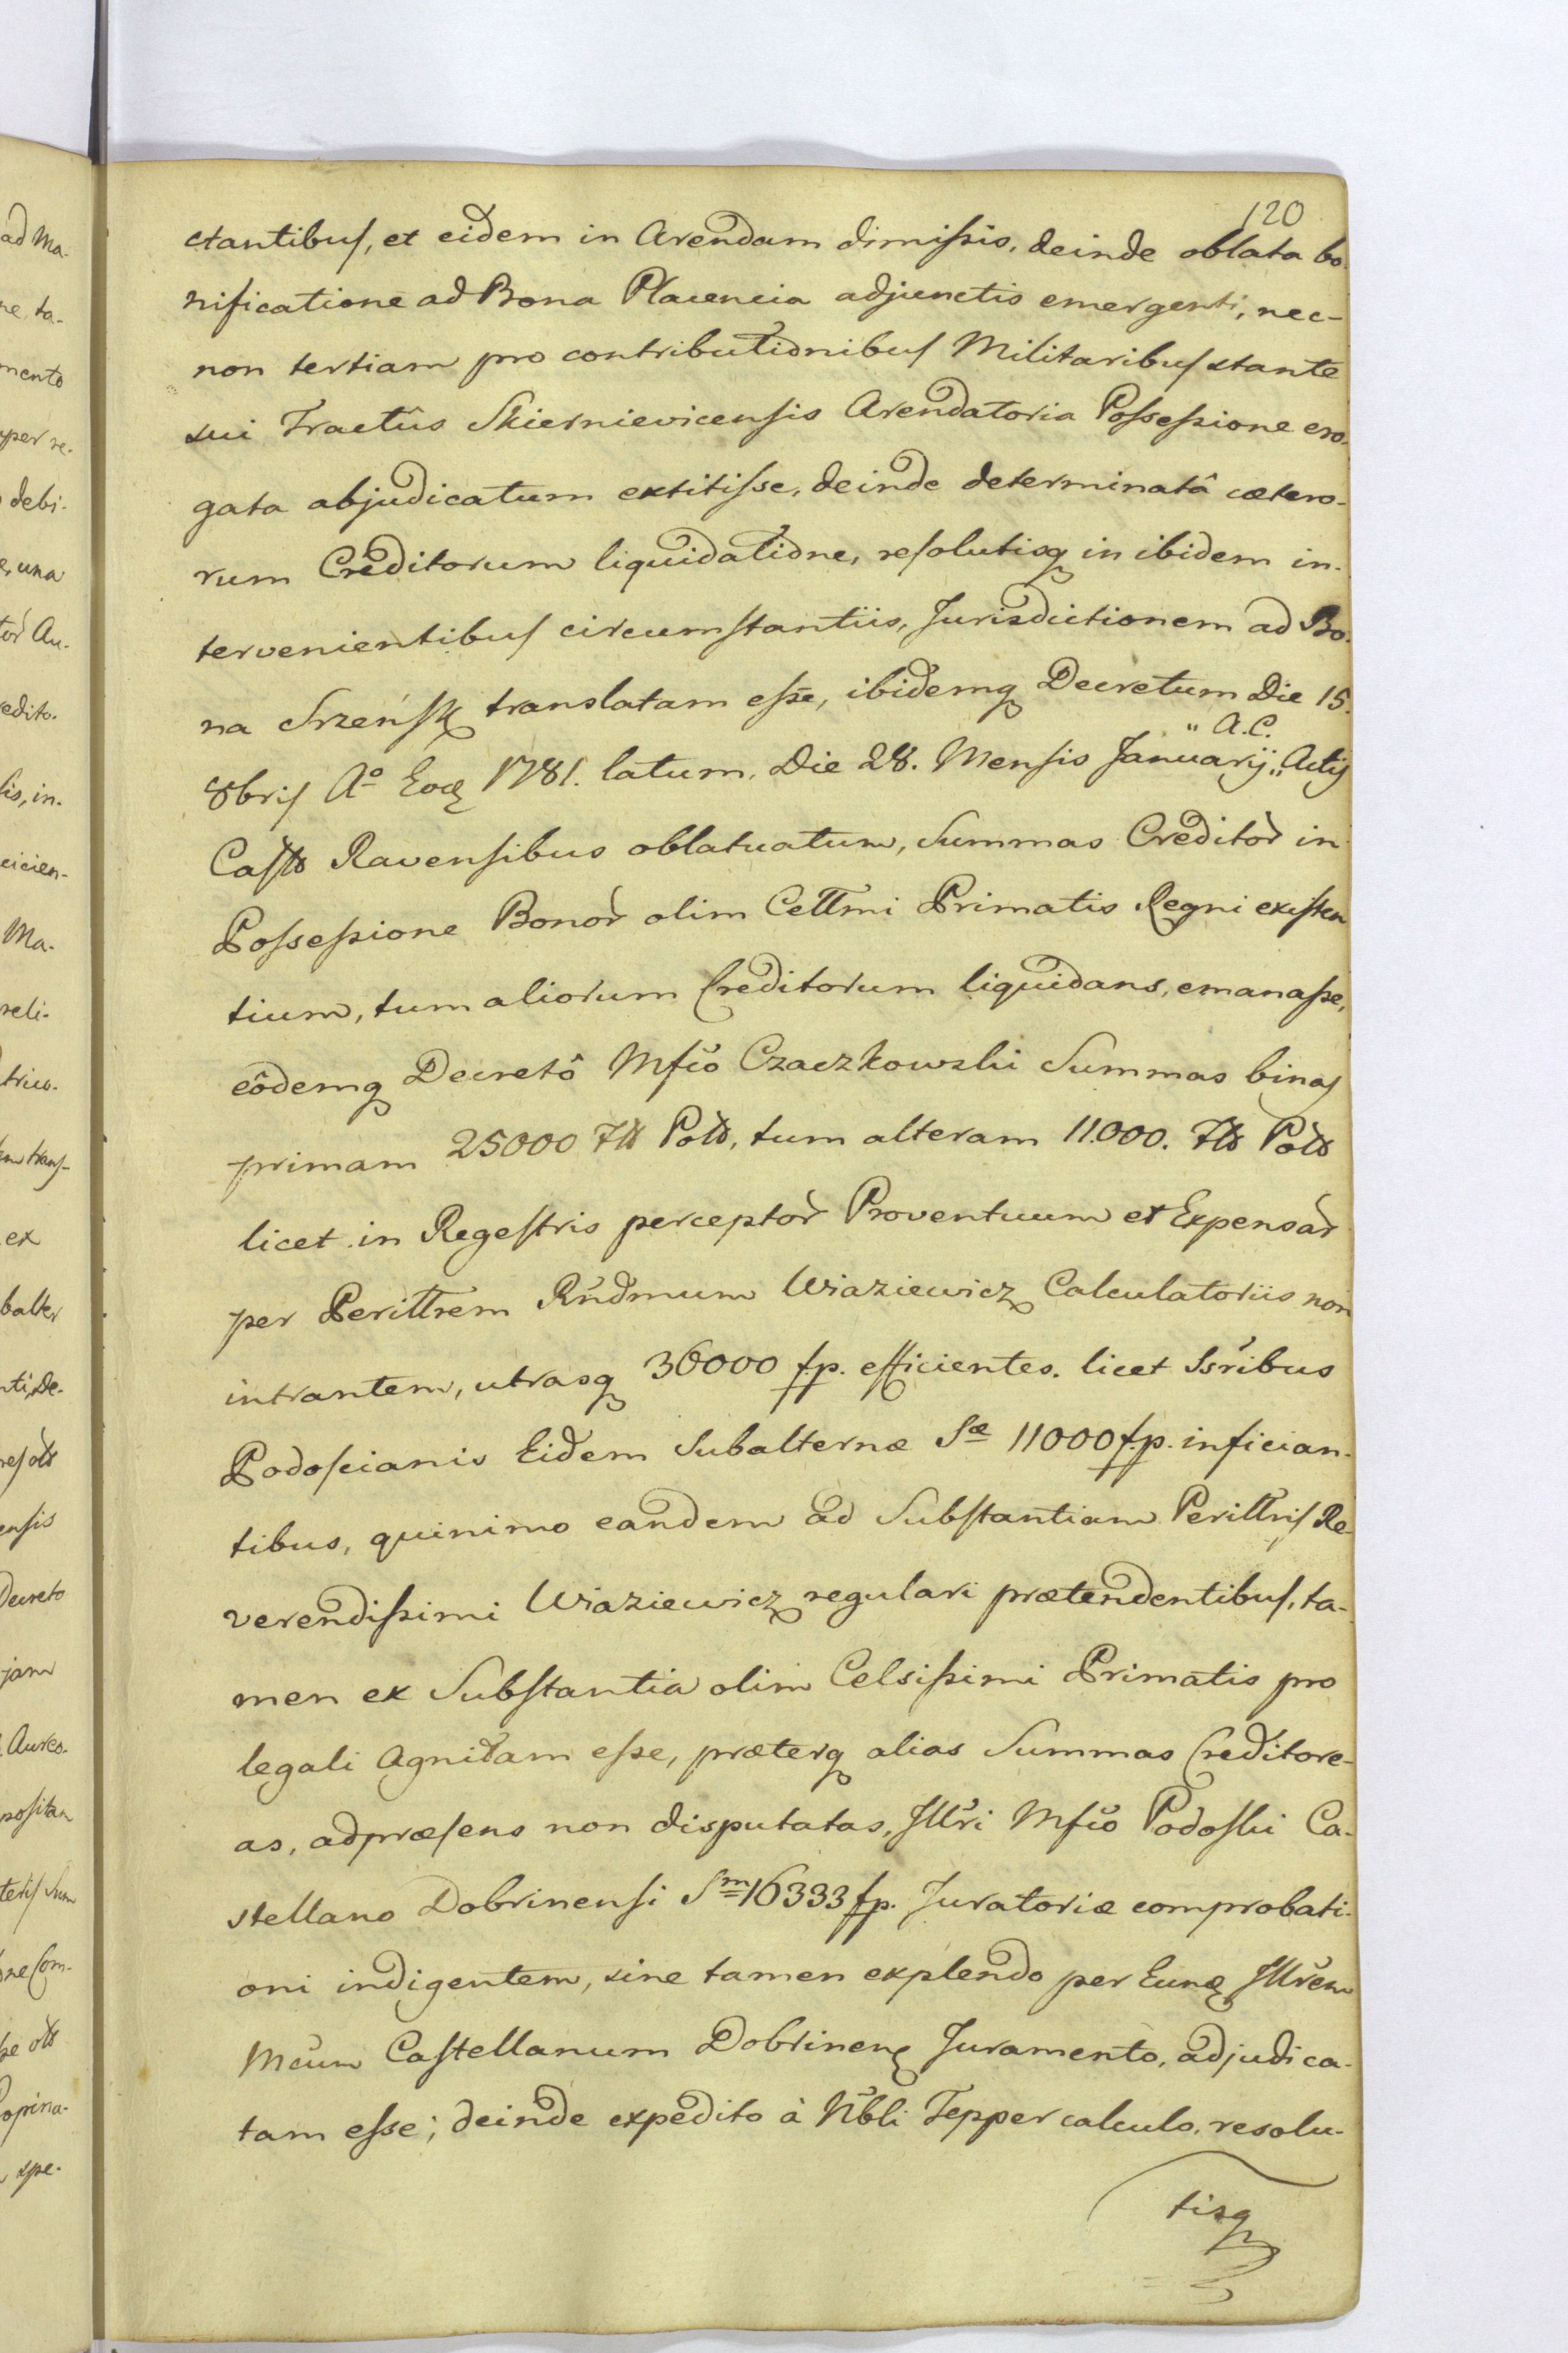 120
ctantibus, et eidem in Arendam dimissis, deinde oblata bo-
nificatione ad Bona Placencia adjunctis emergenti, nec-
non tertiam pro contributionibus Militaribus stante
sui Tractûs Skiernievicensis Arendatoria Possessione ero-
gata abjudicatum extitisse, deinde determinatâ cætero-
rum Creditorum liquidatione, resolutisq in ibidem in-
tervenientibus circumstantiis, Jurisdictionem ad Bo-
na Srzeńsk translatam esse, ibidemq Decretum Die 15.
" A.C.
8bris Aº Eoq 1781. latum, Die 28. Mensis Januarij „ Actis
Castr Ravensibus oblatuatum, Summas Creditor in
Possessione Bonor olim Celtmi Primatis Regni existen
tium, tum aliorum Creditorum liquidans, emanasse,
eôdemq Decretô Mfco Czaczkowski Summas binas
primam 25000 Flr Polr, tum alteram 11.000. Flr Polr
licet in Regestris perceptor Proventuum et Expensar
per Perittrem Rndmum Wiaziewicz Calculatoriis non
intrantem, utrasq 36000 f.p. efficientes. licet Ssribus
Podoscianis Eidem Subalternæ Sæ 11000 f.p. infician-
tibus, quinimo eandem ad Substantiam Perittris Re-
verendissimi Wiaziewicz regulari prætendentibus, ta-
men ex Substantia olim Celsissimi Primatis pro
legali Agnitam esse, præterq alias Summas Creditore-
as, adpræsens non disputatas, Jllri Mfco Podoski Ca-
stellano Dobrinensi Sm 16333 fp. Juratoriæ comprobati-
oni indigentem, sine tamen explendo per Eunq Jllrem
Mcum Castellanum Dobrinenq Juramento, adjudica-
tam esse; deinde expedito à Nbli Tepper calculo, resolu-
tisq